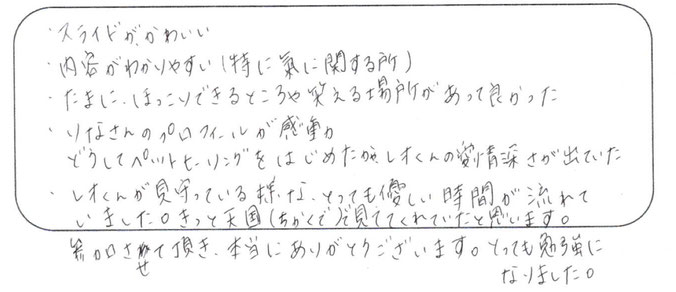 ・スライドが、かわいい
・内容がわかりやすい(特に氣に関する所)
・たまに、ほっこりできるところや笑える場所があって良かった
・りなさんのプロフィールが感動
どうしてペットヒーリングをはじめたか、レオくんの愛情深さが出ていた
・レオくんが見守っている様な、とっても優しい時間が流れて
いました。きっと天国(ちかくで)で見ててくれていたと思います。
参加させて頂き、本当にありがとうございます。とっても勉強に
なりました。